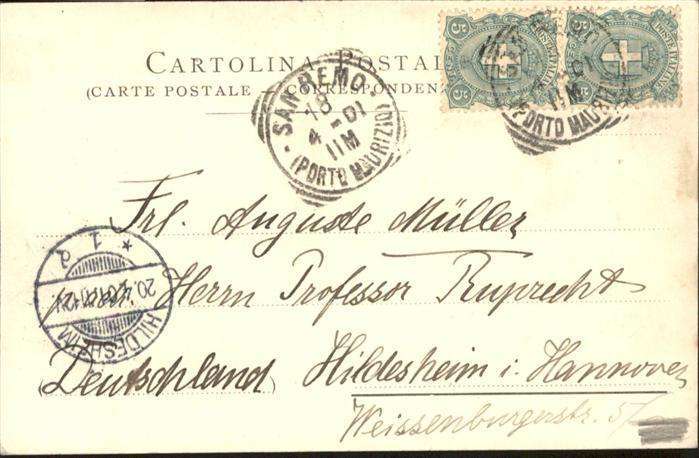 CARTOLINA POSTAL
(CARTE POSTALE – CORRESPONDENZ
SAN REMO
18
4 - 01
11 M
(PORTO MAURIZIO)
5 C 5
POSTE ITALIANE
11 M
(PORTO MAURI
Frl. Auguste Müller
Herrn Professor Ruprecht
HILDESHEIM
20.4.01
* 1 *
(Deutschland) Hildesheim i. Hannover
Weissenburgerstr. 57